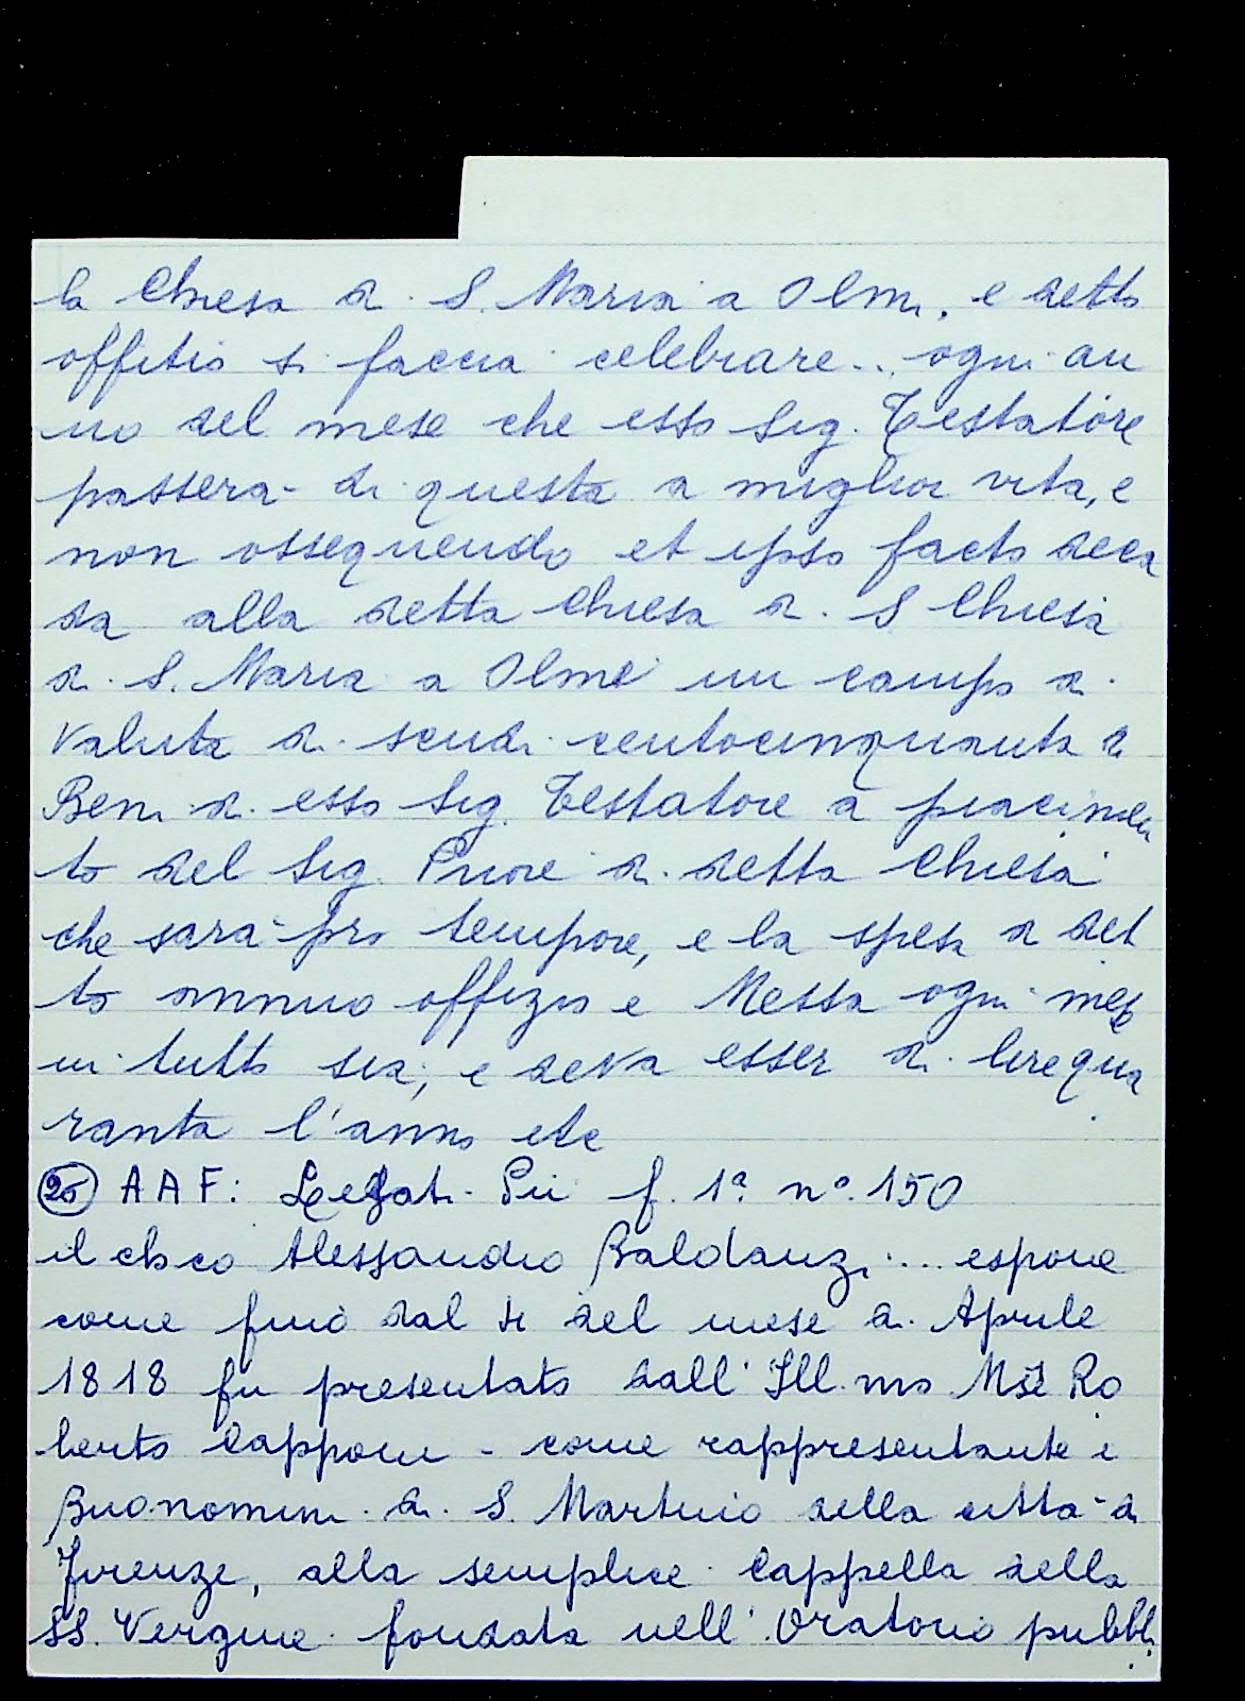 la Chiesa di S. Maria a Olmi, e detto
offitio si faccia celebrare... ogni an
no del mese che esso Sig. Testatore
passerà di questa a miglior vita, e
non ossequendo et ipso facto deca
da alla detta Chiesa di S Chiesa
di S. Maria a Olmi un campo di
valuta di scudi centocinquanta di
Beni di esso Sig. Testatore a piacimen
to del Sig. Priore di detta Chiesa
che sarà pro tempore, e la spesa di det
to annuo offizio e Messa ogni mese
in tutto sia, e deva esser di lire qua
ranta l'anno etc
25 AAF: Legati Pii f. 1ª nº 150
il ch co Alessandro Baldanzi... espone
come fino dal dì del mese di Aprile
1818 fu presentato dall' Ill.mo Mse Ro
berto Capponi - come rappresentante i
Buonomini di S. Martino della città di
Firenze, alla semplice Cappella della
SS. Vergine fondata nell' Oratorio pubbli